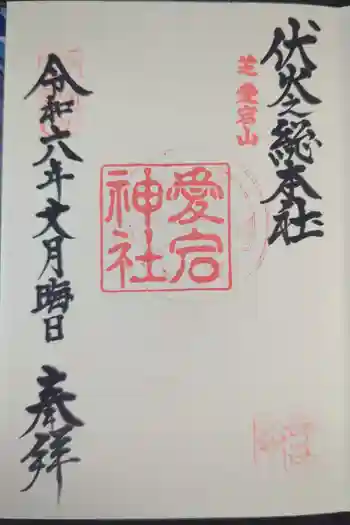 伏火之総本社
芝愛宕山
愛宕
神社
令和六年文月晦日 奉拝